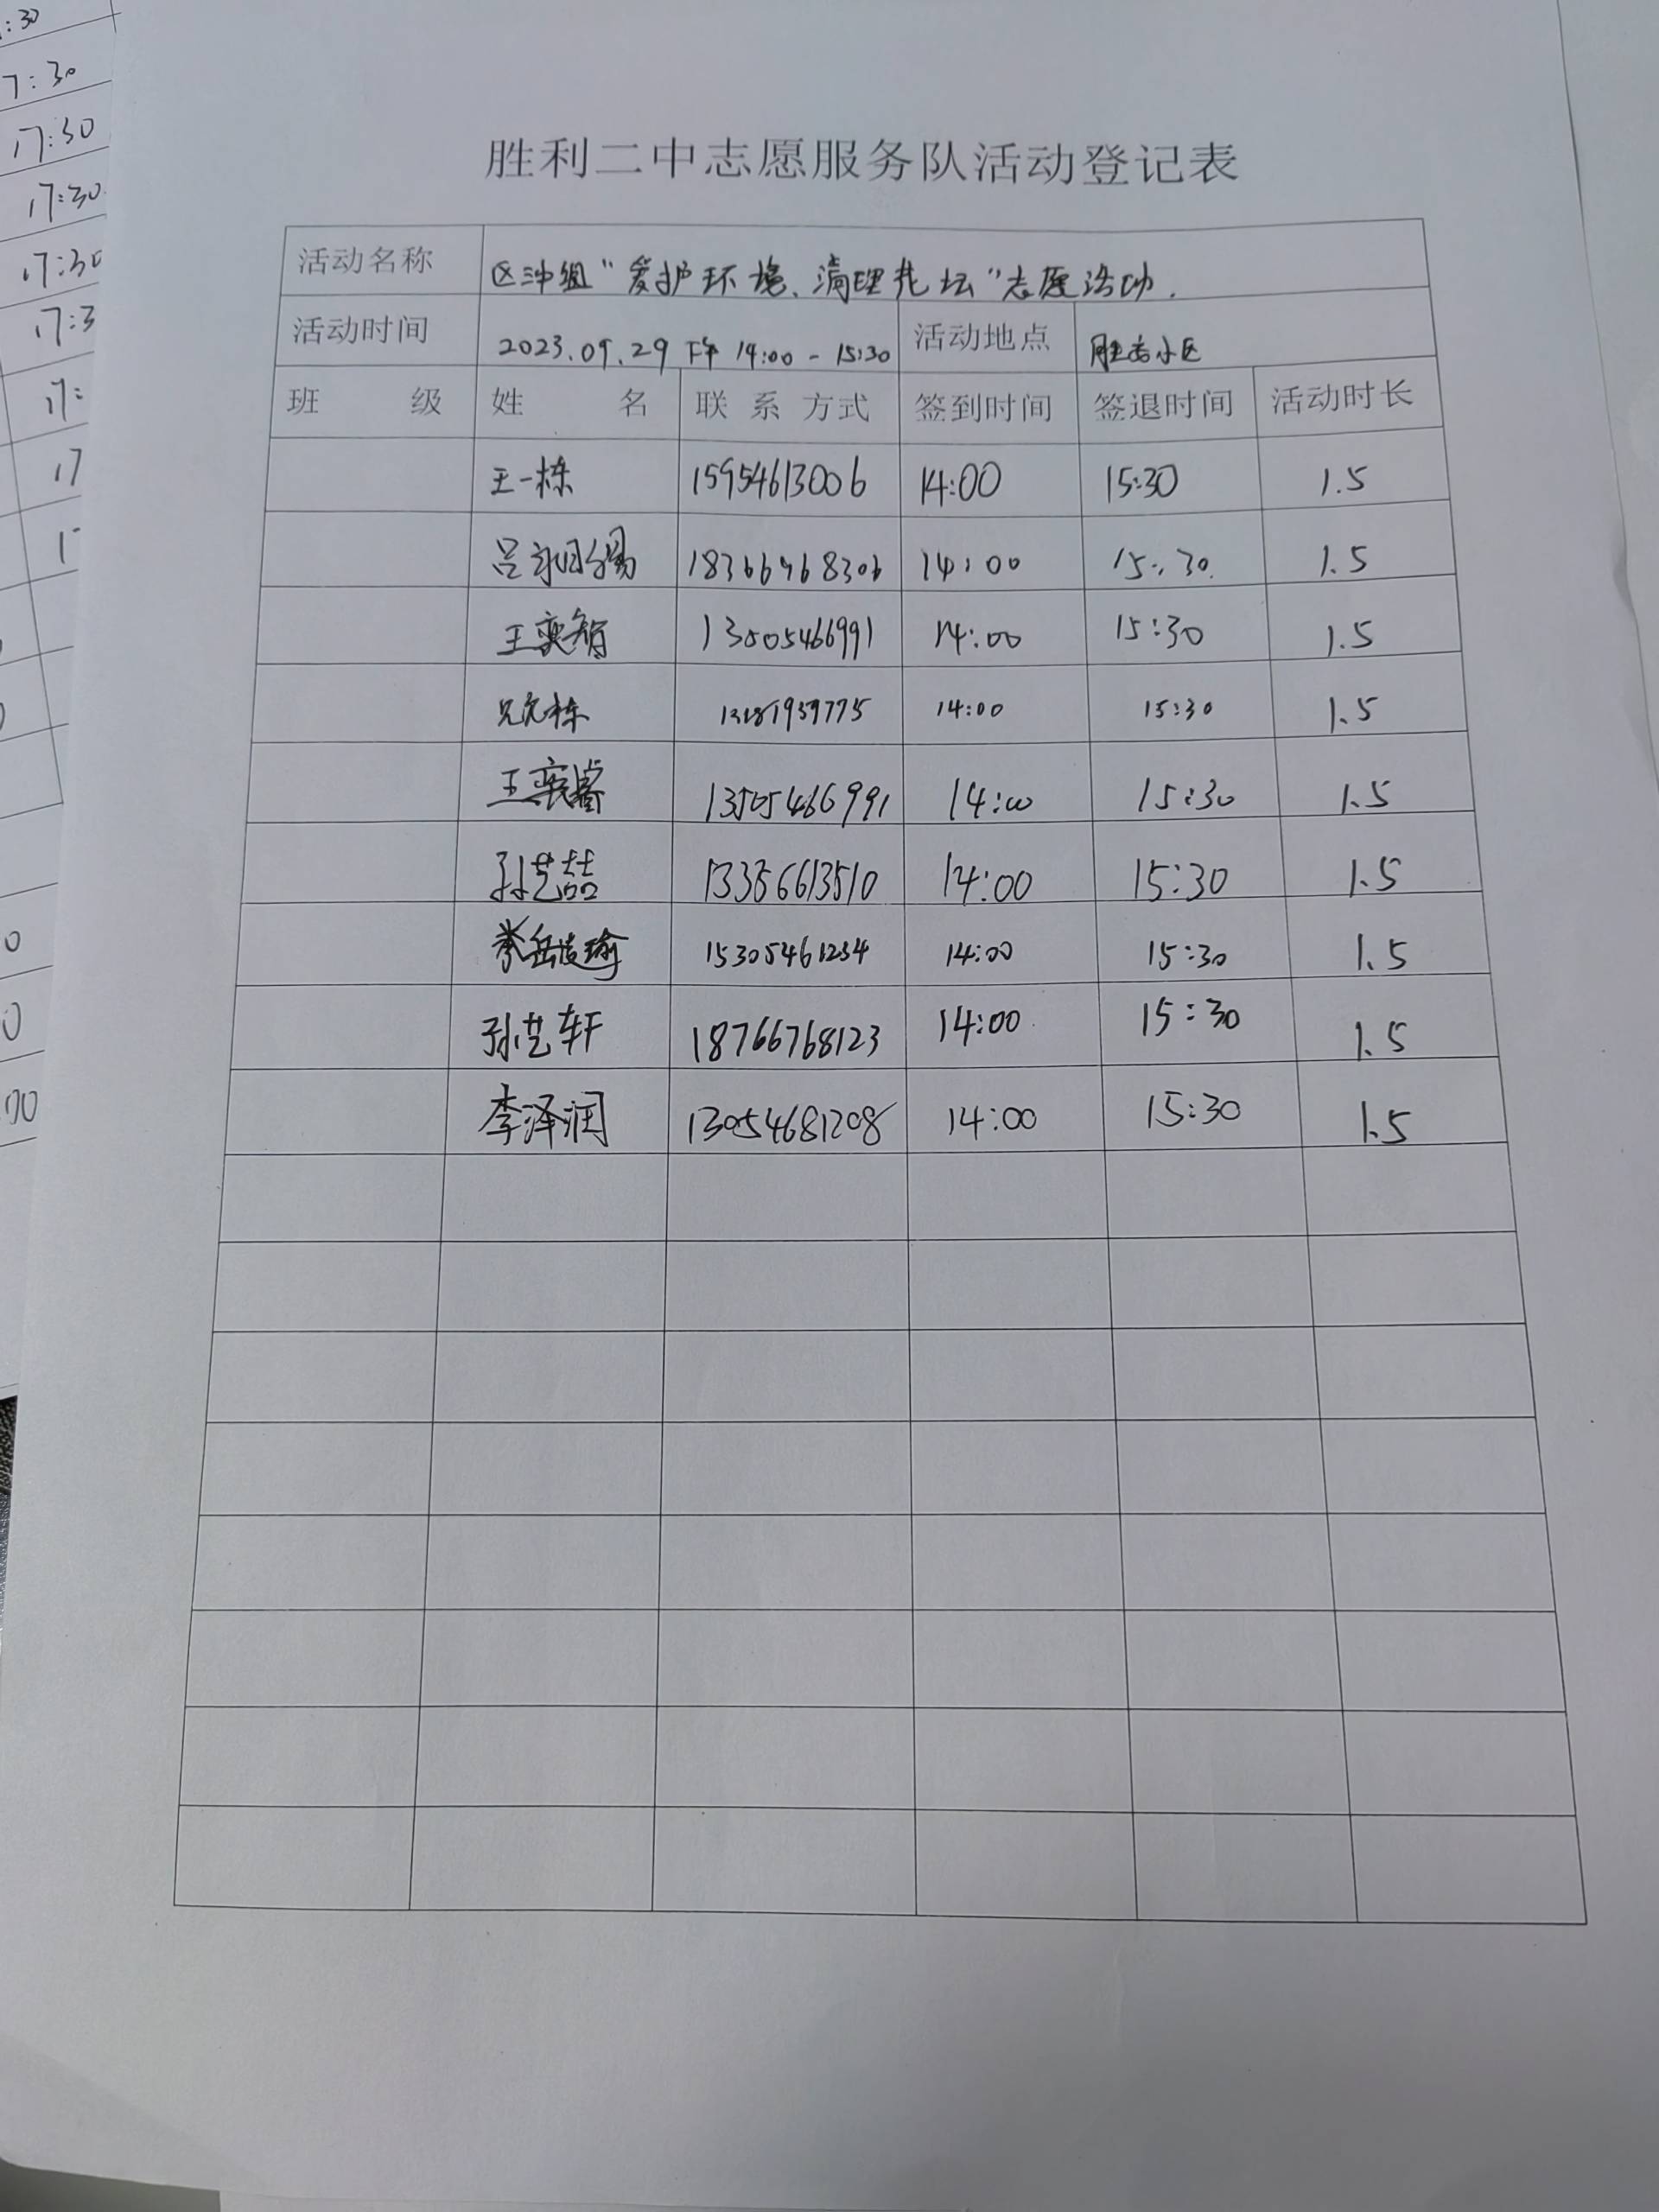 胜利二中志愿服务队活动登记表
活动名称 "爱护环境、清理花坛"志愿活动.
活动时间 2023.09.29 下午 14:00-15:30 活动地点 小区
班 级 姓 名 联系方式 签到时间 签退时间 活动时长
王一栋 15954613006 14:00 15:30 1.5
吕 18366968306 14:00 15:30 1.5
王奕智 13505466991 14:00 15:30 1.5
14:00 15:30 1.5
王奕睿 13505466991 14:00 15:30 1.5
孙艺喆 13356613510 14:00 15:30 1.5
15305461234 14:00 15:30 1.5
孙艺轩 18766768123 14:00 15:30 1.5
李泽润 13054681208 14:00 15:30 1.5
7:30
17:30
17:30
17:30